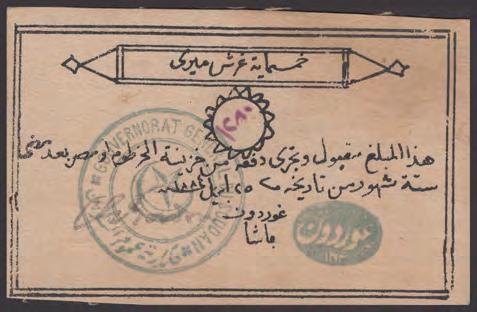 خمسماية غرش ميرى
هذا المبلغ مقبول ويجرى دفعه من خزينة الخرطوم او مصر بعد مضى
ستة شهور من تاريخه ٢٥ ابريل ١٨٨٤
غوردون
باشا
GOUVERNORAT GENERAL SOUDAN
غوردون